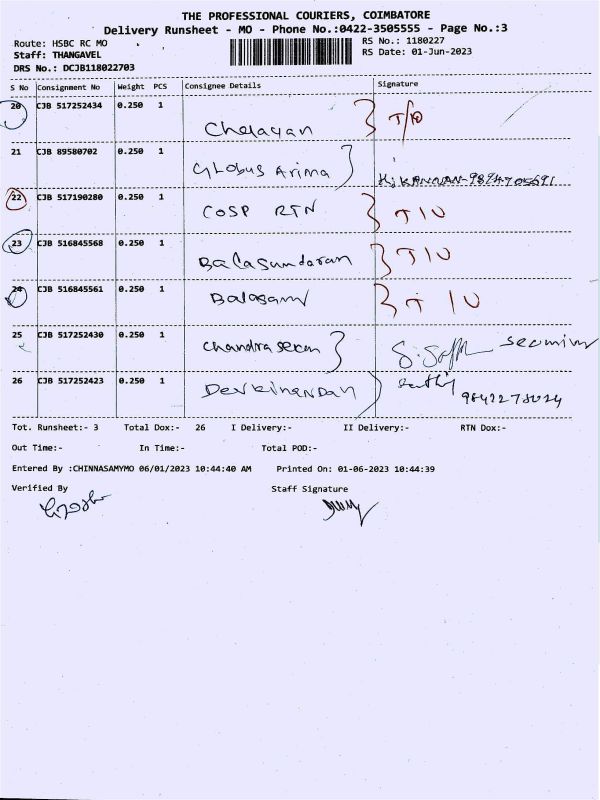 THE PROFESSIONAL COURIERS, COIMBATORE
Delivery Runsheet - MO - Phone No.:0422-3505555 - Page No.:3
Route: HSBC RC MO RS No.: 1180227
Staff: THANGAVEL RS Date: 01-Jun-2023
DRS No.: DCJB118022703
S No Consignment No Weight PCS Consignee Details Signature
20 CJB 517252434 0.250 1
Chelayan T/O
21 CJB 89580702 0.250 1
Globus Arima
22 CJB 517190280 0.250 1
COSP RTN T/O
23 CJB 516845568 0.250 1
Balasundaran T/O
24 CJB 516845561 0.250 1
Balasami T/O
25 CJB 517252430 0.250 1
Chandrasekan
26 CJB 517252423 0.250 1
Devkinandan
Tot. Runsheet:- 3 Total Dox:- 26 I Delivery:- II Delivery:- RTN Dox:-
Out Time:- In Time:- Total POD:-
Entered By :CHINNASAMYMO 06/01/2023 10:44:40 AM Printed On: 01-06-2023 10:44:39
Verified By Staff Signature